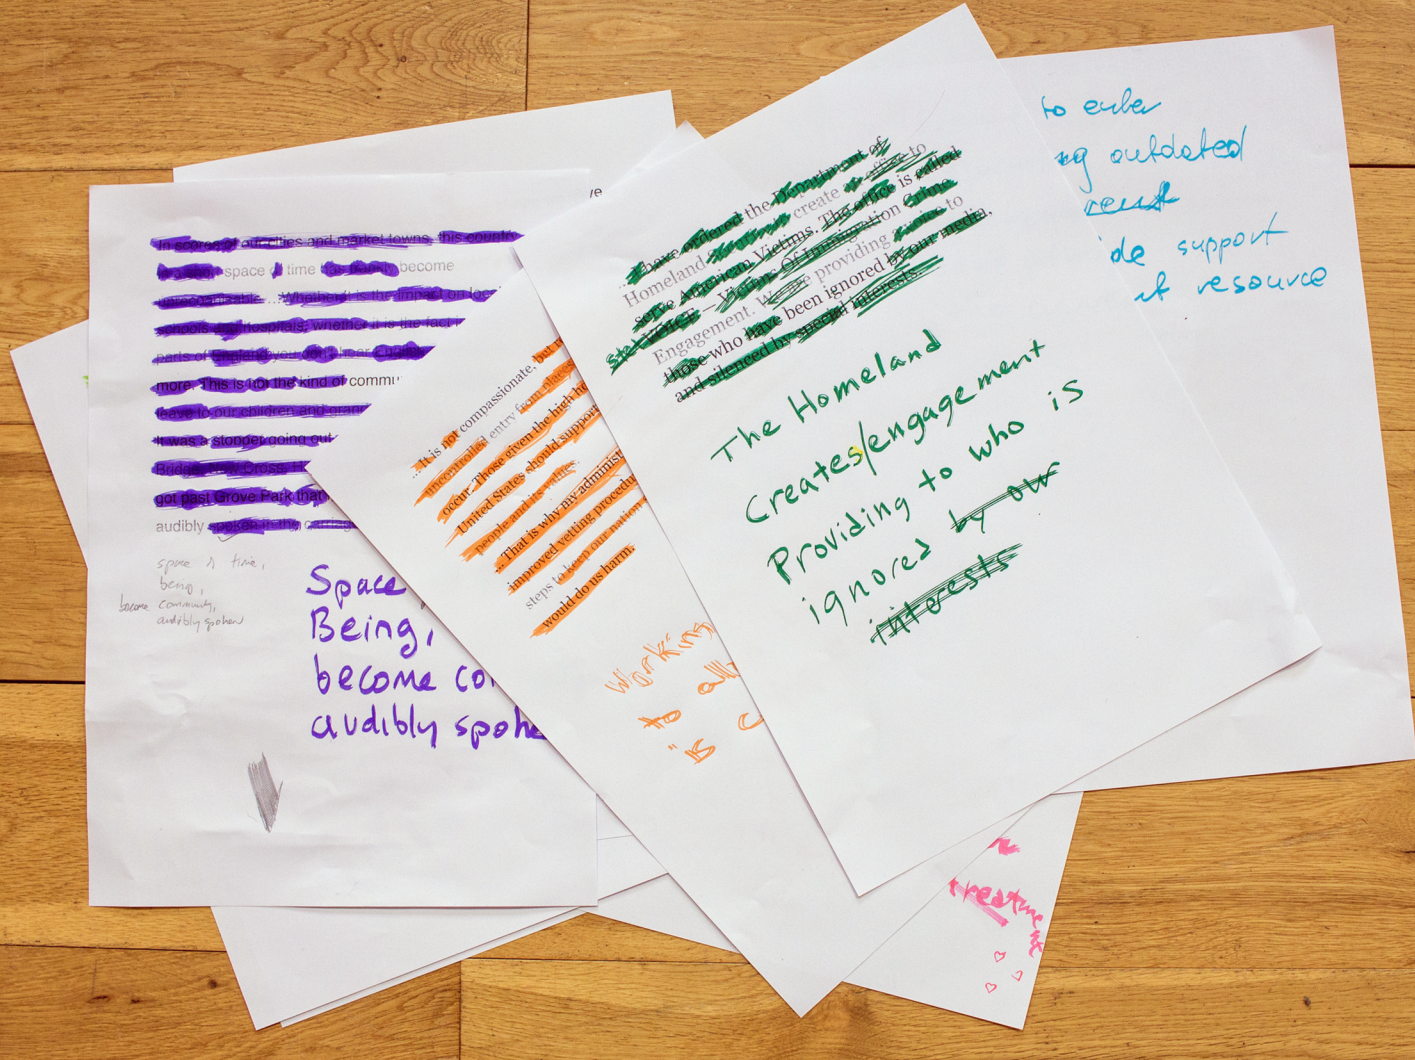 In scores of our cities and market towns, this country
space of time has frankly become
unrecognisable. ...Whether it is the impact on local
schools and hospitals, whether it is the fact in
parts of England you don't hear
more. This is not the kind of commu
leave to our children and gran
It was a stopper going out
Bridge, New Cross, H
got past Grove Park that
audibly spoken in the carriage
space of time,
being,
become community,
audibly spoken
Space
Being,
become co
audibly spoke
ve
...It is not compassionate, but r
uncontrolled entry from places
occur. Those given the high ho
United States should support
people and its values.
... That is why my administ
improved vetting procedu
steps to keep our nation
would do us harm.
Working
to all
"is c
...I have ordered the Department of
Homeland create office to
serve American Victims. The office is called
– Victims Of Immigration Crime
Engagement. We are providing a voice to
those who have been ignored by our media,
and silenced by special interests.
The Homeland
Creates/engagement
Providing to who is
ignored by our
interests
to enter
ng outdated
ide support
nt resource
treatment